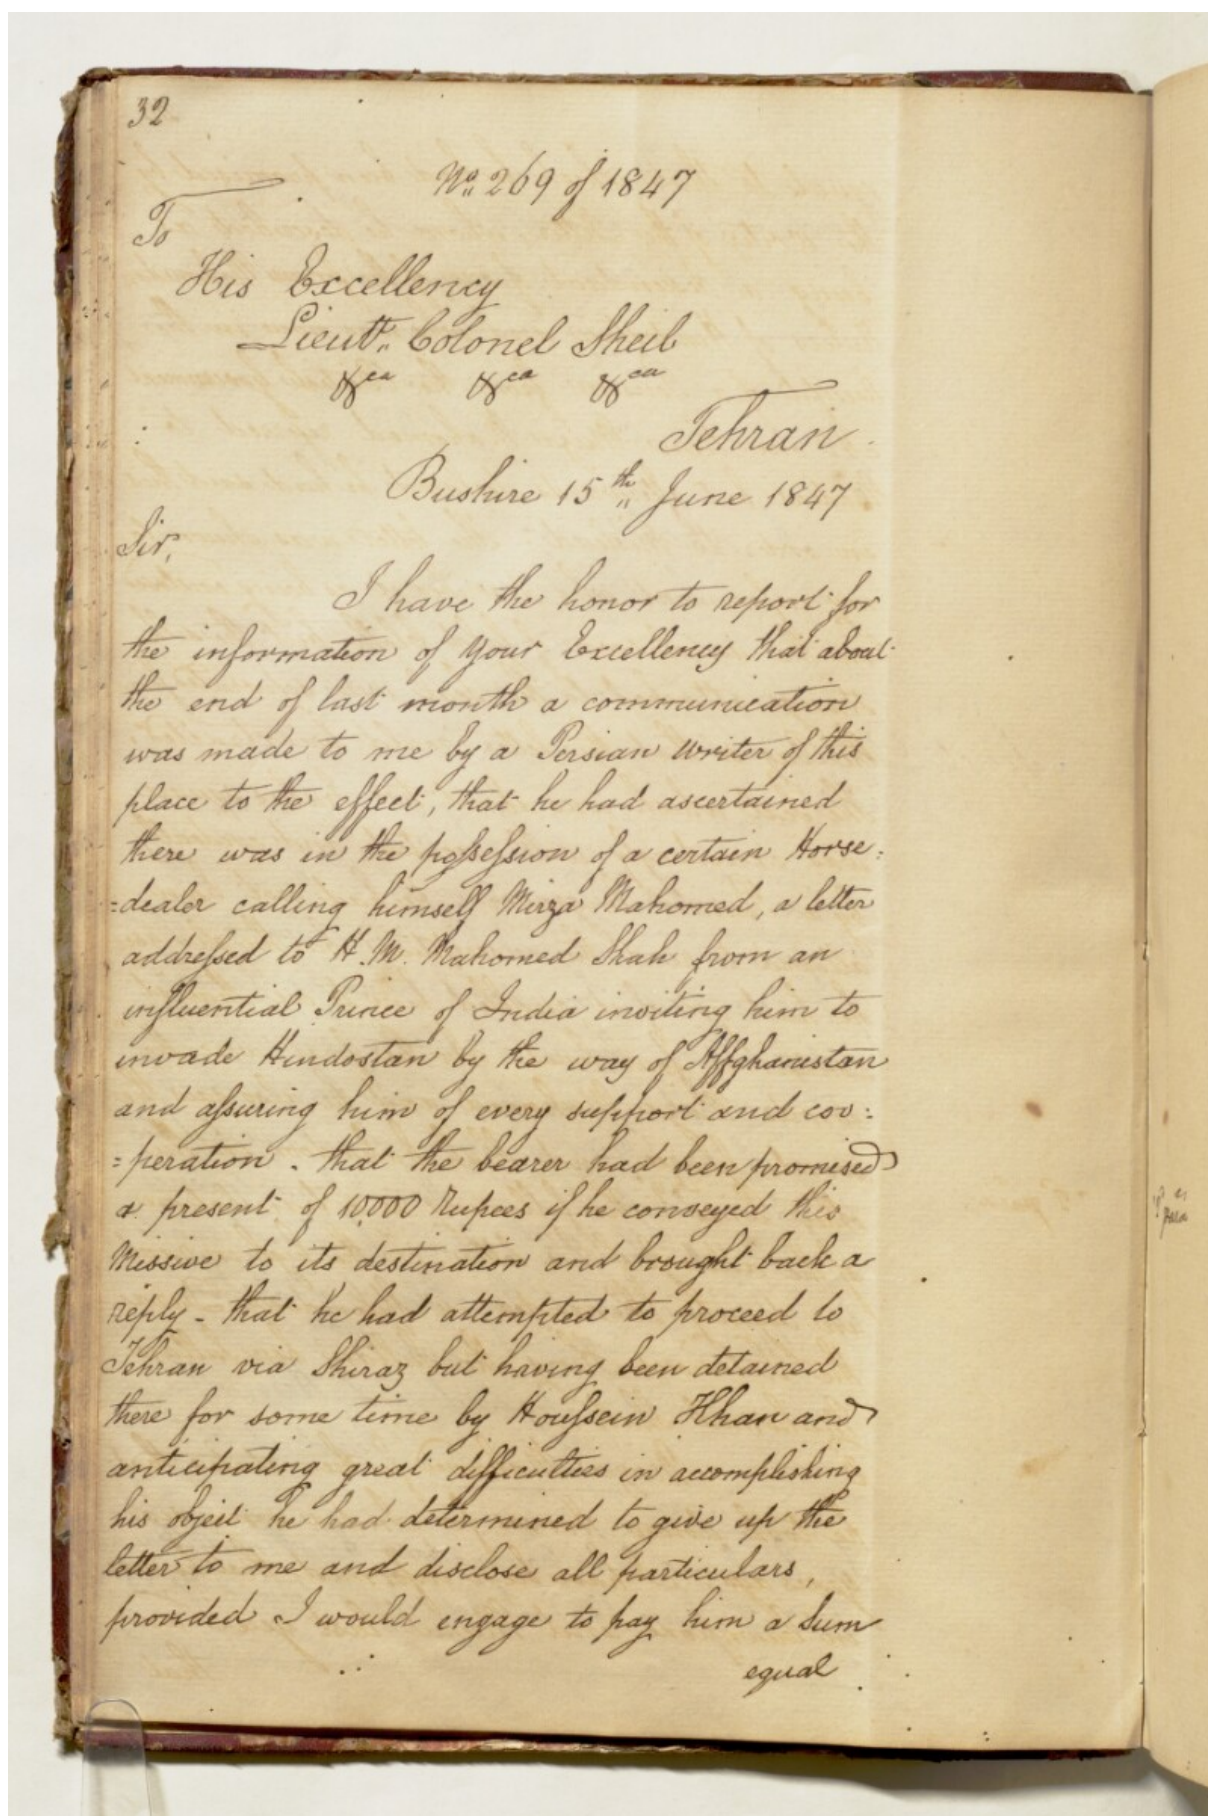 32
No. 269 of 1847
To
His Excellency
Lieutt. Colonel Sheil
&ca &ca &ca
Tehran
Bushire 15th June 1847
Sir,
I have the honor to report for
the information of Your Excellency that about
the end of last month a communication
was made to me by a Persian writer of this
place to the effect, that he had ascertained
there was in the possession of a certain Horse=
=dealer calling himself Mirza Mahomed, a letter
addressed to H.M. Mahomed Shah from an
influential Prince of India inviting him to
invade Hindostan by the way of Affghanistan
and assuring him of every support and coo=
=peration. that the bearer had been promised
a present of 10,000 Rupees if he conveyed this
Missive to its destination and brought back a
reply - that he had attempted to proceed to
Tehran via Shiraz but having been detained
there for some time by Houssein Khan and
anticipating great difficulties in accomplishing
his object he had determined to give up the
letter to me and disclose all particulars,
provided I would engage to pay him a Sum
equal